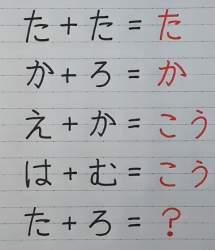 た + た = た
か + ろ = か
え + か = こう
は + む = こう
た + ろ = ?